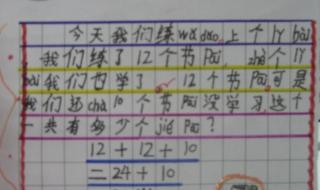 今天我们练wǔdǎo,上个lǐ bài
我们练了12个节Pāi, zhè个lǐ
bài我们也学了12个节Pāi,可是
我们还chà10个节Pāi没学习,这个
一共有多少个jié Pāi?
12+12+10
=24+10